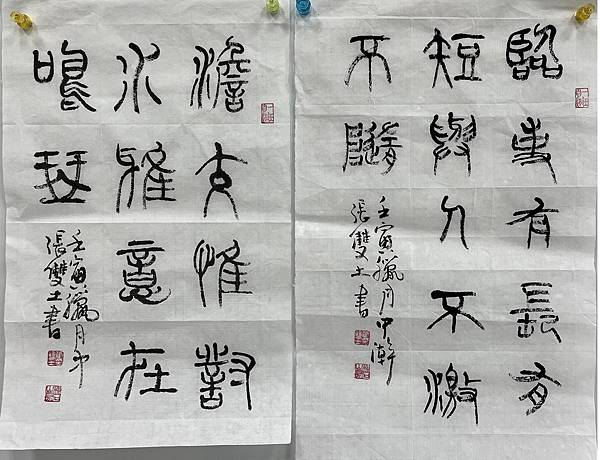 臨事有長有
短與人不激
不隨
壬寅臘月中澣
張雙土書
澹交惟對
水雅意在
鳴琴
壬寅臘月中
張雙土書